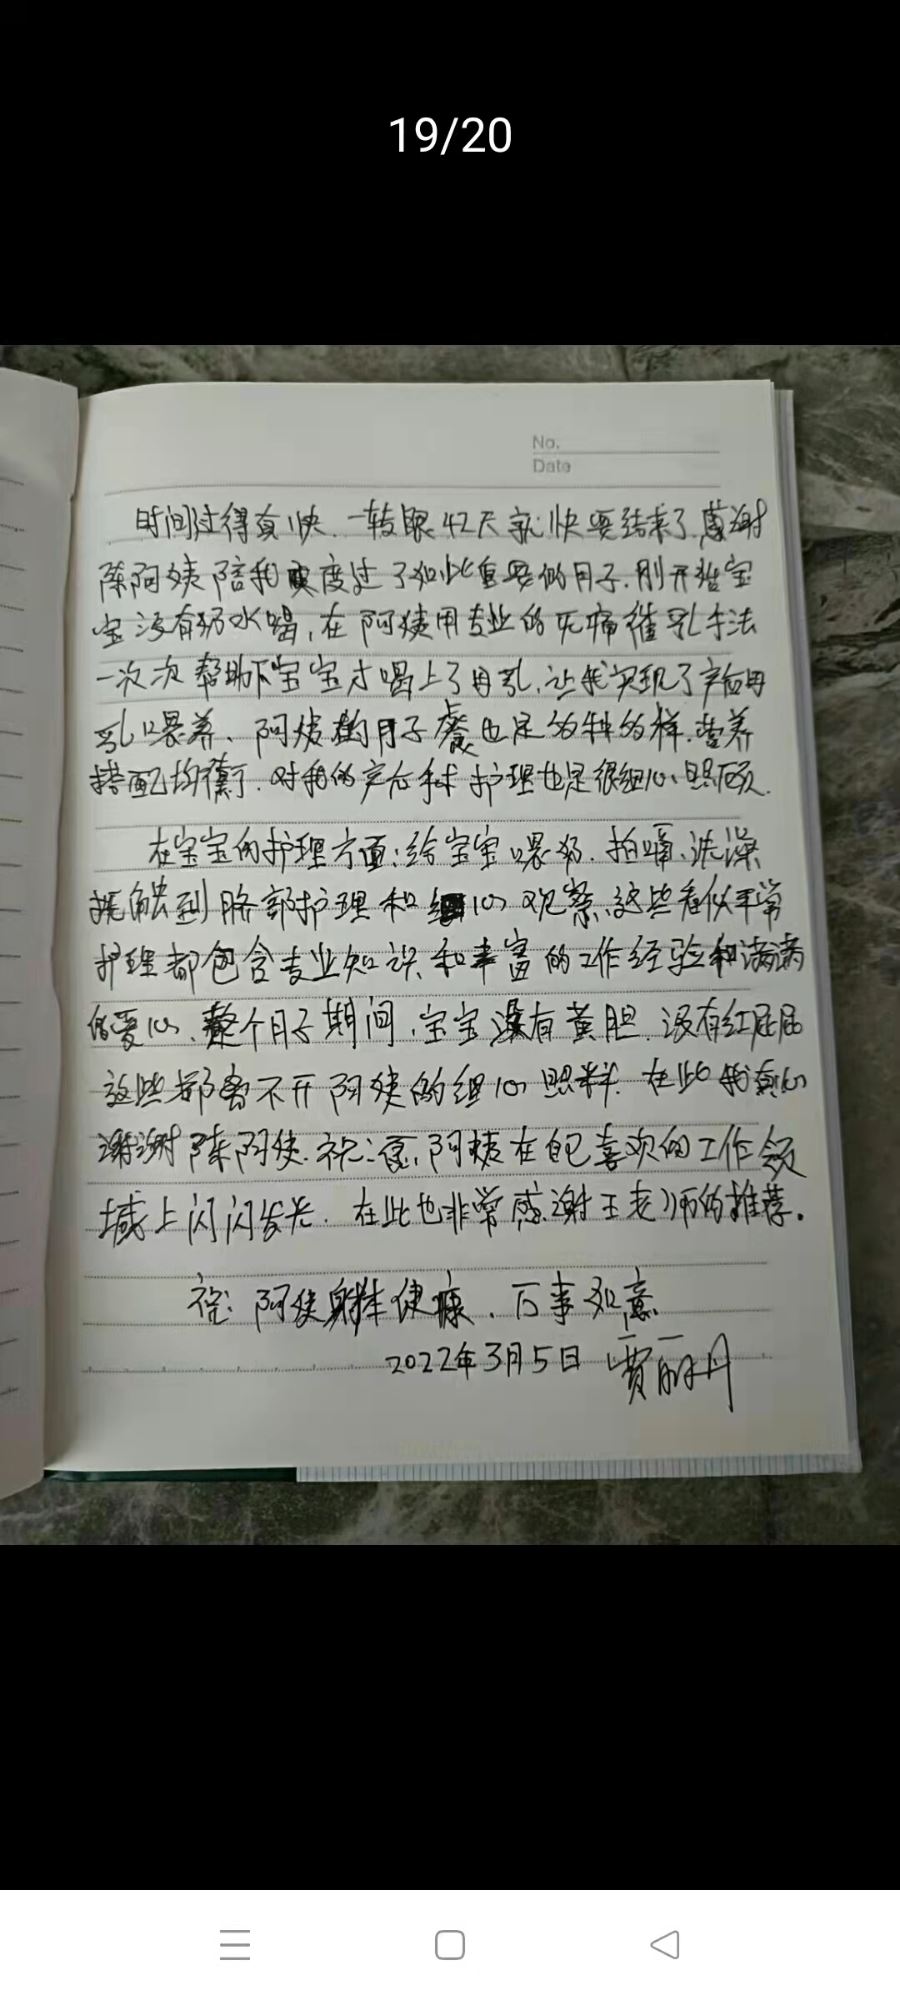 19/20
No.
Date
时间过得真快、一转眼42天就快要结束了.感谢
陈阿姨陪我度过了如此重要的月子.刚开始宝
宝没有奶水喝,在阿姨用专业的无痛催乳手法
一次次帮助下宝宝才喝上了母乳,让我实现了产后母
乳喂养、阿姨的月子餐也是各种各样.营养
搭配均衡.对我的产后护理也是很细心、照顾.
在宝宝的护理方面:给宝宝喂奶.拍嗝、洗澡
抚触到脐部护理和心观察、这些看似平常
护理都包含专业知识和丰富的工作经验和满满
的爱心、整个月子期间,宝宝没有黄胆.没有红屁屁
这些都离不开阿姨的细心照料.在此我真心
谢谢陈阿姨.祝愿,阿姨在自己喜欢的工作领
域上闪闪发光.在此也非常感谢王老师的推荐。
祝:阿姨身体健康、万事如意
2022年3月5日 贾丽丹